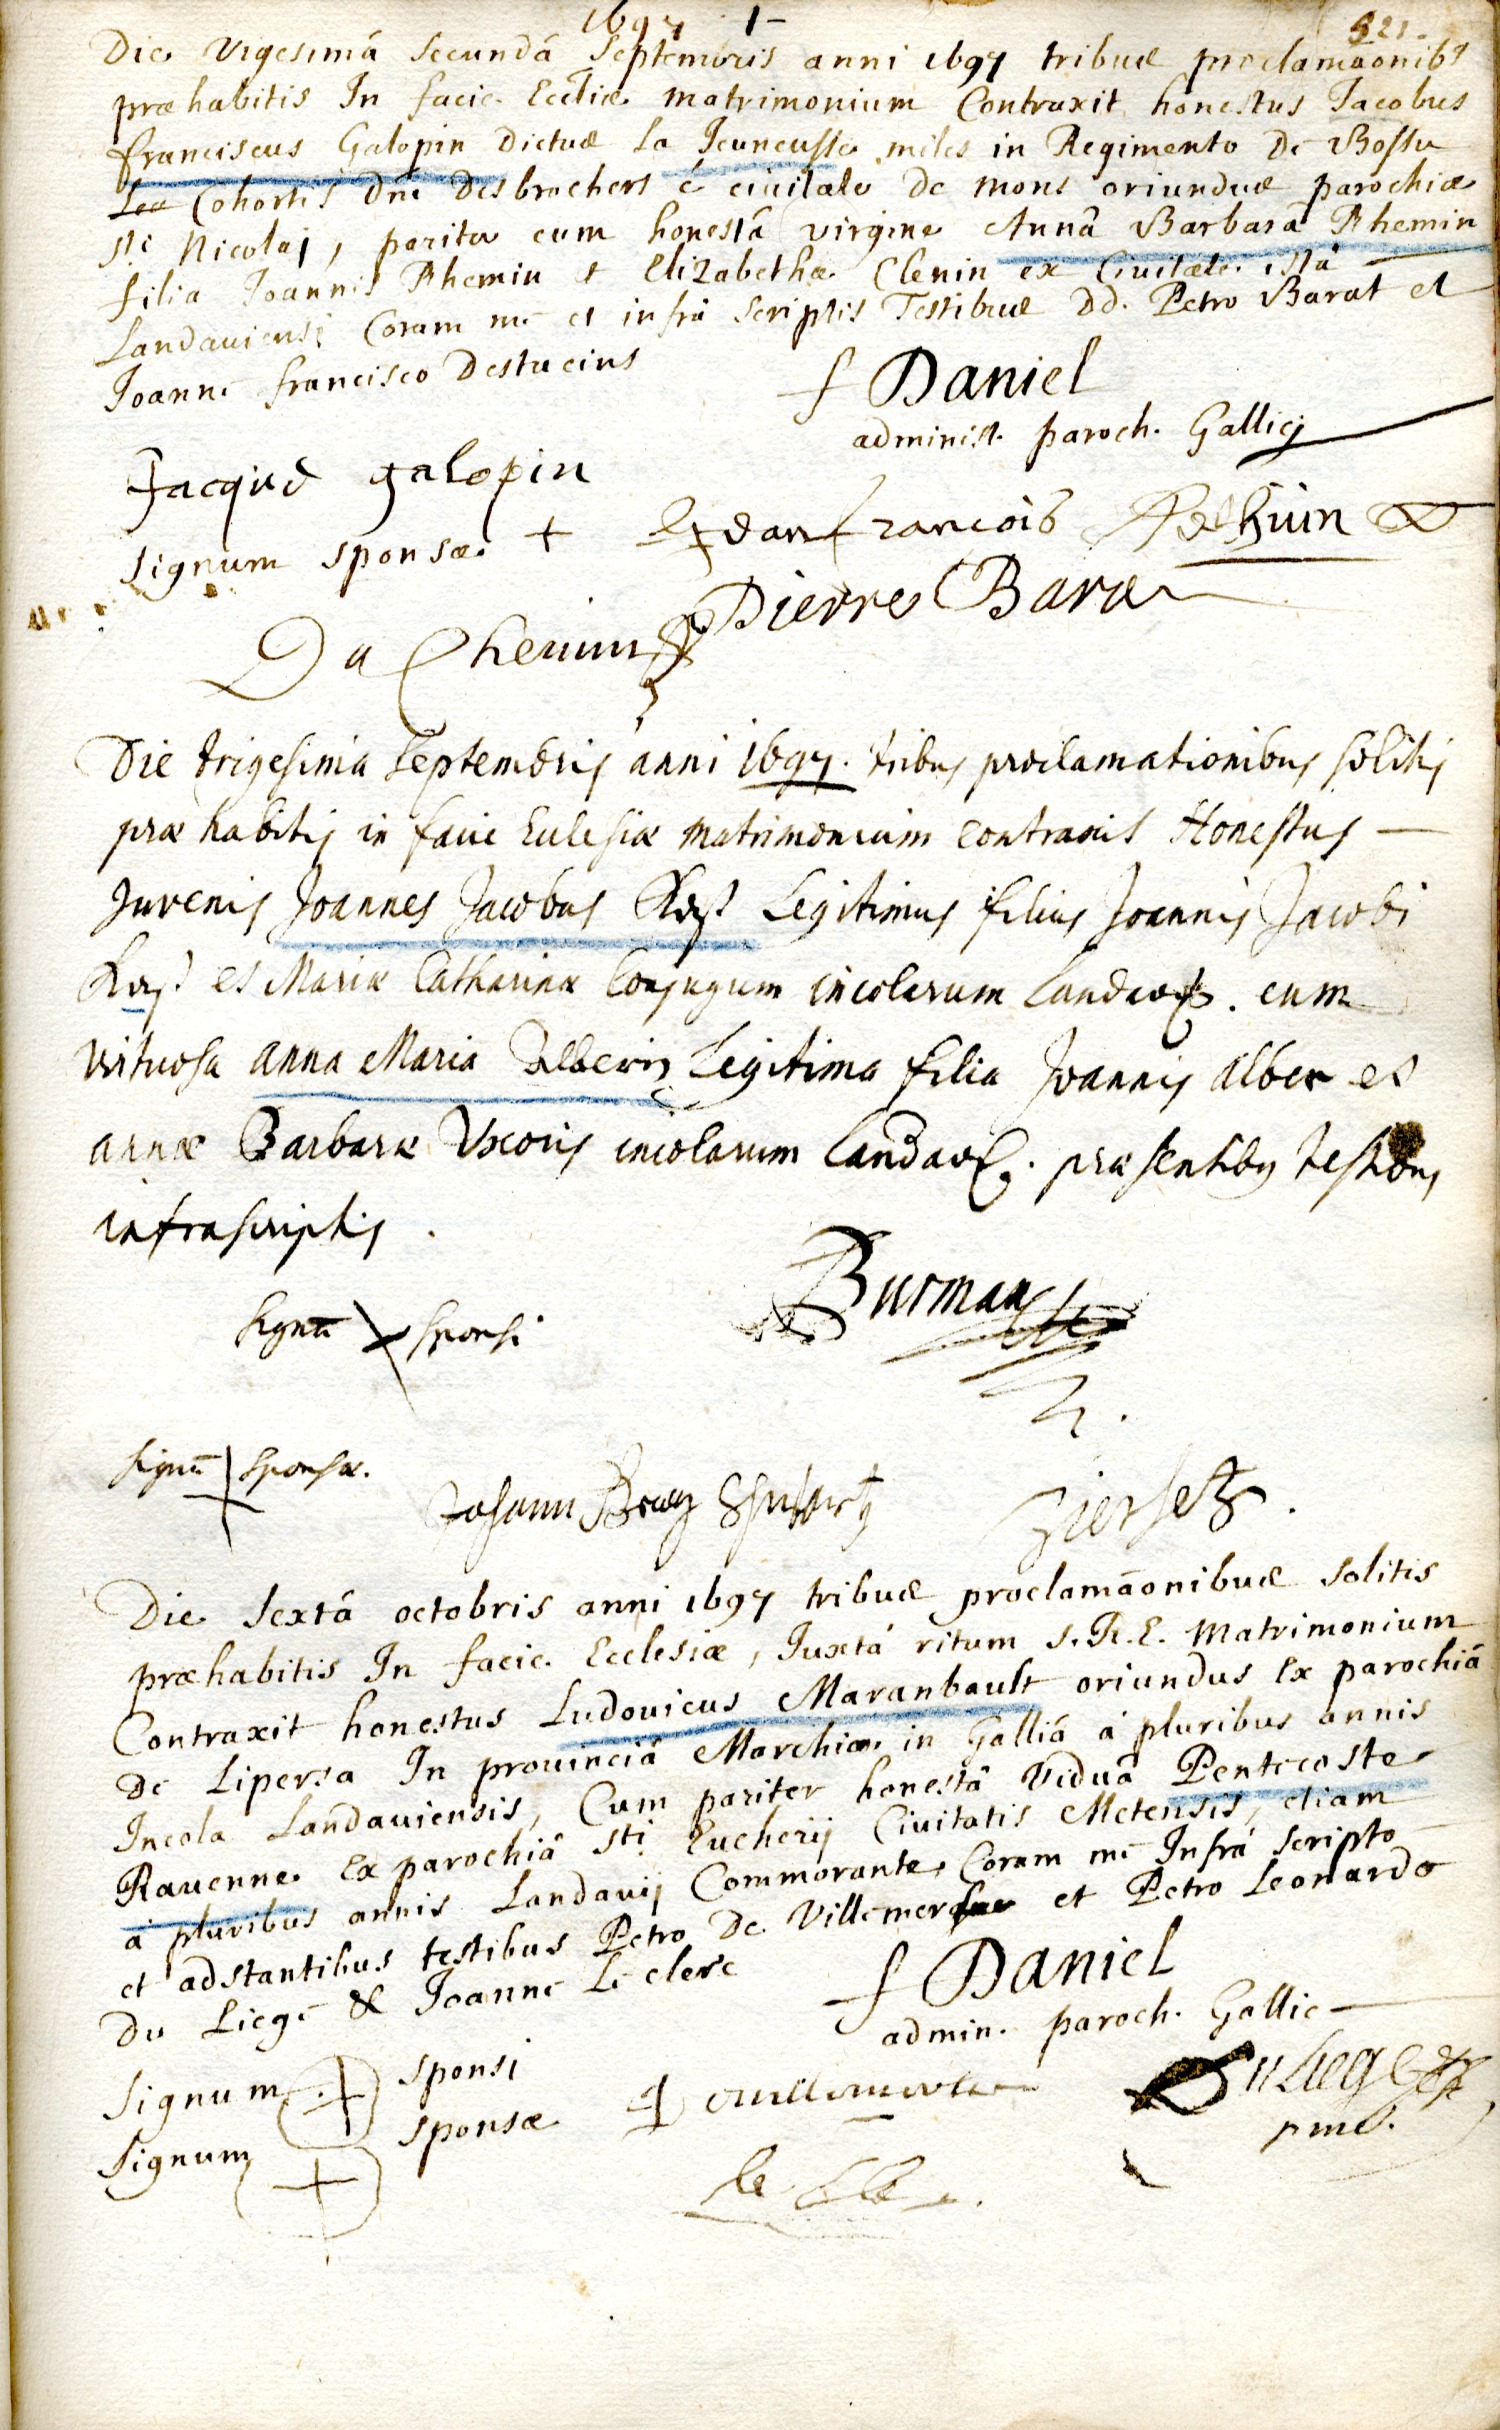 1697
321.
Die Vigesimâ secundâ Septembris anni 1697 tribus proclamaõnibs
præhabitis In facie Eccliæ matrimonium Contraxit honestus Jacobus
franciscus Galopin Dictus La Jeunesse miles in Regimento De Bossu
Cohortis Dni Desbrochers é ciuitate de mons oriundus parochiæ
sti Nicolaj, pariter cum honestâ virgine Annâ Barbarâ Rhemin
filia Joannis Rhemin et Elizabethæ Clenin ex Ciuitate istâ
Landauiensi Coram me et infrà scriptis Testibus DD. Petro Barat et
Joanne francisco Destucins
f Daniel
administ. paroch. Gallicj
Jacque galopin
signum sponsæ +
francois
Pierre Bara
Die trigesima Septembris anni 1697. tribus proclamationibus solitis
præhabitis in facie Ecclesiæ matrimonium contraxit Honestus
Juvenis Joannes Jacobus Legitimus filius Joannis Jacobi
et Mariæ Catharinæ Conjugum incolarum Landav. cum
virtuosa anna Maria Alberin Legitima filia Joannis alber et
annæ Barbaræ Uxoris incolarum Landav. præsentibus testibus
infrascriptis.
Burman
signũ sponsi
signũ sponsæ.
Johann
Die sextâ octobris anni 1697 tribus proclamãonibus solitis
præhabitis In facie Ecclesiæ, Juxtá ritum S.R.E. Matrimonium
Contraxit honestus Ludouicus Maranbault oriundus Ex parochiâ
De Lipersa In prouinciâ Marchiæ in Galliâ à pluribus annis
Incola Landauiensis, Cum pariter honestâ Viduâ Pentecoste
Rauenne Ex parochiâ Sti Eucherij Ciuitatis Metensis, etiam
à pluribus annis Landavij Commorante Coram me Infrá scripto
et adstantibus testibus Petro De et Petro Leonardo
Du Liege & Joanne Le clerc
f Daniel
admin. paroch. Gallic
Signum + sponsi
Signum + sponsæ
Duliege